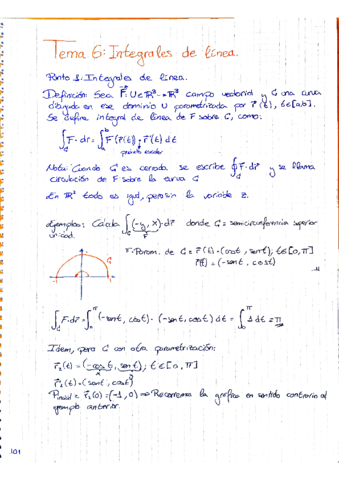 Tema 6: Integrales de línea.
Punto 1: Integrales de línea.
Definición: Sea F: U∈ℝ³→ℝ³ campo vectorial y C una curva
dibujada en ese dominio U parametrizada por r(t), t∈[a,b].
Se define integral de línea de F sobre C, como:
∫_C F·dr = ∫_a^b F(r(t))·r'(t) dt
producto escalar
Nota: Cuando C es cerrada, se escribe ∮F·dr y se llama
circulación de F sobre la curva C
En ℝ² todo es igual, pero sin la variable z.
Ejemplos: Calcula ∫_C (-y, x)·dr donde C = semicircunferencia superior
F
unidad.
F. Param. de C = r(t) = (cost, sent), t∈[0,π]
r'(t) = (-sent, cost)
C
∫_C F·dr = ∫_0^π (-sent, cost)·(-sent, cost) dt = ∫_0^π 1 dt = π
Idem, pero C con otra parametrización:
r₂(t) = (-cost, sent); t∈[0,π]
r₂'(t) = (sent, cost)
r₂(0) = (-1, 0) ⇒ Recorremos la gráfica en sentido contrario al
ejemplo anterior.
101